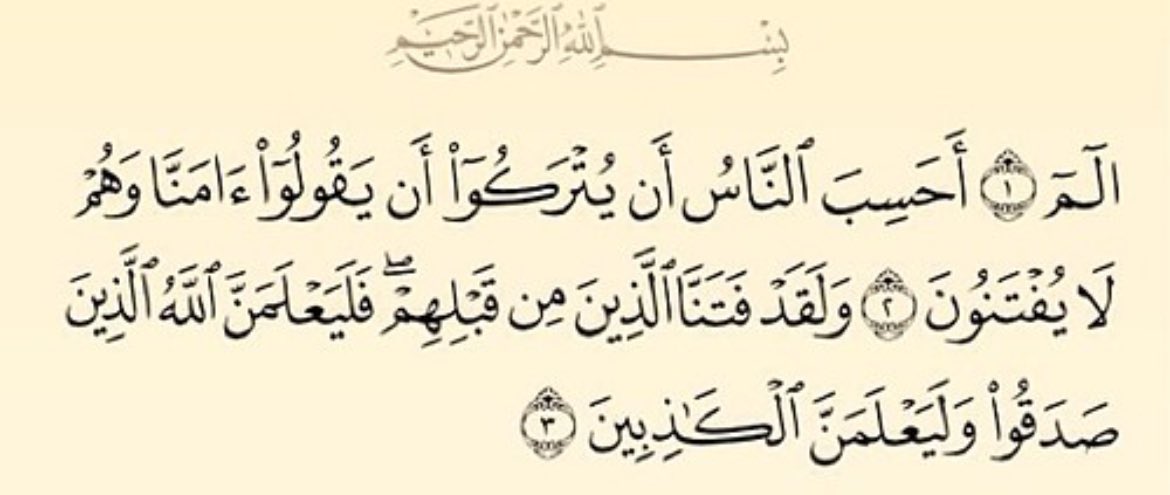 بِسْمِ ٱللَّهِ ٱلرَّحْمَٰنِ ٱلرَّحِيمِ
الٓمٓ ١ أَحَسِبَ ٱلنَّاسُ أَن يُتْرَكُوٓا۟ أَن يَقُولُوٓا۟ ءَامَنَّا وَهُمْ
لَا يُفْتَنُونَ ٢ وَلَقَدْ فَتَنَّا ٱلَّذِينَ مِن قَبْلِهِمْ ۖ فَلَيَعْلَمَنَّ ٱللَّهُ ٱلَّذِينَ
صَدَقُوا۟ وَلَيَعْلَمَنَّ ٱلْكَٰذِبِينَ ٣